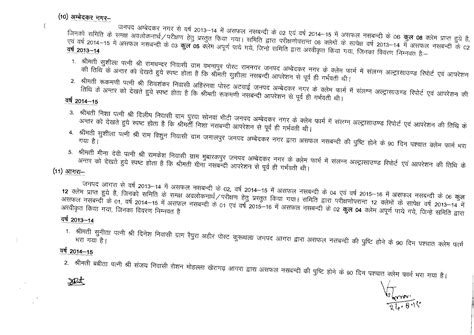 (10) अम्बेदकर नगर–
जनपद अम्बेदकर नगर से वर्ष 2013–14 में असफल नसबन्दी के 02 एवं वर्ष 2014–15 में असफल नसबन्दी के 06 कुल 08 क्लेम प्राप्त हुये है,
जिनको समिति के समक्ष अवलोकनार्थ/परीक्षण हेतु प्रस्तुत किया गया। समिति द्वारा परीक्षणोपरान्त 08 क्लेमो के सापेक्ष वर्ष 2013–14 में असफल नसबन्दी के 02
एवं वर्ष 2014–15 में असफल नसबन्दी के 03 कुल 05 क्लेम अपूर्ण पाये गये, जिन्हे समिति द्वारा अस्वीकृत किया गया, जिनका विवरण निम्नवत है:–
वर्ष 2013–14
1. श्रीमती सुशीला पत्नी श्री रामबन्दर निवासी ग्राम पोस्ट रामनगर जनपद अम्बेदकर नगर के क्लेम फार्म में संलग्न अल्ट्रासाउण्ड रिपोर्ट एवं आपरेशन
की तिथि के अन्तर को देखते हुये स्पष्ट होता है कि श्रीमती सुशीला नसबन्दी आपरेशन से पूर्व ही गर्भवती थी।
2. श्रीमती रूकमणी पत्नी श्री शिवशंकर निवासी पोस्ट अटवाई जनपद अम्बेदकर नगर के क्लेम फार्म में संलग्न अल्ट्रासाउण्ड रिपोर्ट एवं आपरेशन की तिथि
के अन्तर को देखते हुये स्पष्ट होता है कि श्रीमती रूकमणी नसबन्दी आपरेशन से पूर्व ही गर्भवती थी।
वर्ष 2014–15
3. श्रीमती निशा पत्नी श्री दिलीप निवासी ग्राम पुरवा जनपद अम्बेदकर नगर के क्लेम फार्म में संलग्न अल्ट्रासाउण्ड रिपोर्ट एवं आपरेशन की तिथि के
अन्तर को देखते हुये स्पष्ट होता है कि श्रीमती निशा नसबन्दी आपरेशन से पूर्व ही गर्भवती थी।
4. श्रीमती सुशीला पत्नी श्री राम निवासी ग्राम जमालपुर जनपद अम्बेदकर नगर द्वारा असफल नसबन्दी की पुष्टि होने के 90 दिन पश्चात क्लेम फार्म भरा
गया।
5. श्रीमती मीना देवी पत्नी श्री रामकेश निवासी ग्राम मुबारकपुर जनपद अम्बेदकर नगर के क्लेम फार्म में संलग्न अल्ट्रासाउण्ड रिपोर्ट एवं आपरेशन की तिथि के
अन्तर को देखते हुये स्पष्ट होता है कि श्रीमती मीना नसबन्दी आपरेशन से पूर्व ही गर्भवती थी।
(11) आगरा–
जनपद आगरा से वर्ष 2013–14 में असफल नसबन्दी के 02, वर्ष 2014–15 में असफल नसबन्दी के 04 एवं वर्ष 2015–16 में असफल नसबन्दी के 06 कुल
12 क्लेम प्राप्त हुये है, जिनको समिति के समक्ष अवलोकनार्थ/परीक्षण हेतु प्रस्तुत किया गया। समिति द्वारा परीक्षणोपरान्त 12 क्लेमो के सापेक्ष वर्ष 2013–14 में
असफल नसबन्दी के 01, वर्ष 2014–15 में असफल नसबन्दी के 01 एवं वर्ष 2015–16 में असफल नसबन्दी के 02 कुल 04 क्लेम अपूर्ण पाये गये, जिन्हे समिति द्वारा
अस्वीकृत किया गया, जिनका विवरण निम्नवत है
वर्ष 2013–14
1. श्रीमती सुशीला पत्नी श्री दिनेश निवासी ग्राम रैपुरा अहीर पोस्ट जनपद आगरा द्वारा असफल नसबन्दी की पुष्टि होने के 90 दिन पश्चात क्लेम फार्म
भरा गया है।
वर्ष 2014–15
2. श्रीमती बबीता पत्नी श्री संजय निवासी रोशन मोहल्ला खेरागढ़ आगरा द्वारा असफल नसबन्दी की पुष्टि होने के 90 दिन पश्चात क्लेम फार्म भरा गया है।